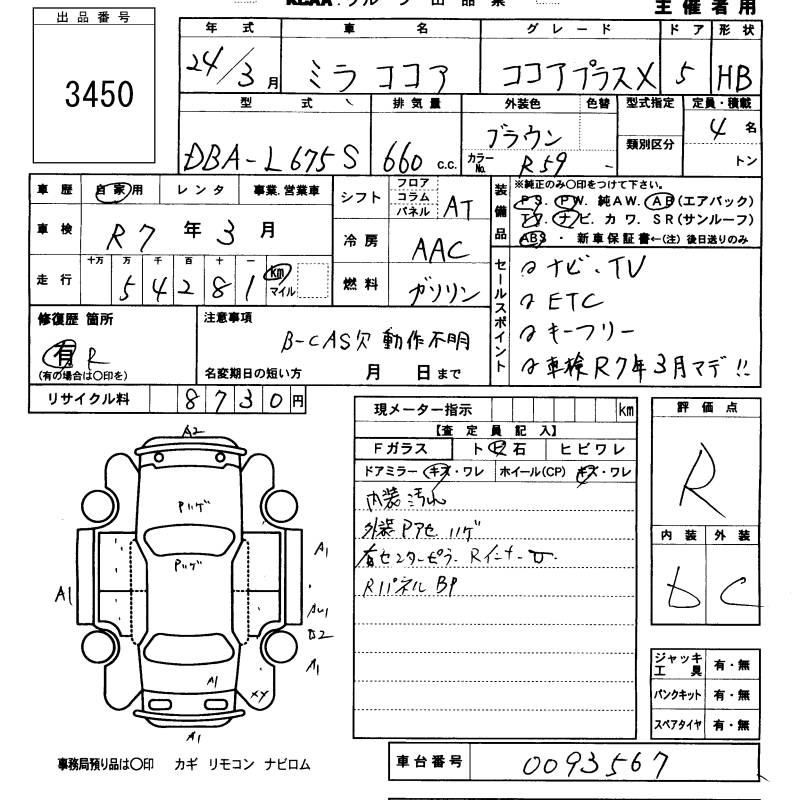 出品番号
3450
主催者用
年式 車名 グレード ドア 形状
24/3月 ミラココア ココアプラスX 5 HB
型式 排気量 外装色 色替 型式指定 定員・積載
DBA-L675S 660 c.c. ブラウン カラーNo. R59 - 類別区分 4名 トン
車歴 自家用 レンタ 事業.営業車
車検 R7年3月
走行 十万 万 千 百 十 一
54281 km マイル
シフト フロア コラム パネル AT
冷房 AAC
燃料 ガソリン
装備品 ※純正のみ〇印をつけて下さい。
P.S. P.W. 純AW. AB(エアバック)
ナビ. カワ. SR(サンルーフ)
ABS ・ 新車保証書←(注) 後日送りのみ
セールスポイント
ナビ・TV
ETC
キーフリー
車検R7年3月マデ!!
修復歴 箇所
有 R
(有の場合は〇印を)
注意事項
B-CAS欠 動作不明
名変期日の短い方 月 日まで
リサイクル料 8730円
現メーター指示 km
【査定員記入】
Fガラス ト 石 ヒビワレ
ドアミラー キズ・ワレ ホイール(CP) キズ・ワレ
内装汚れ
外装Pアセ ハゲ
右センターピラー Rインナー
Rパネル BP
評価点
R
内装 外装
D C
ジャッキ工具 有・無
パンクキット 有・無
スペアタイヤ 有・無
A2
Pハゲ
Pハゲ
A1
A1
AU1
B2
A1
A1
XY
A1
事務局預り品は〇印 カギ リモコン ナビロム
車台番号 0093567